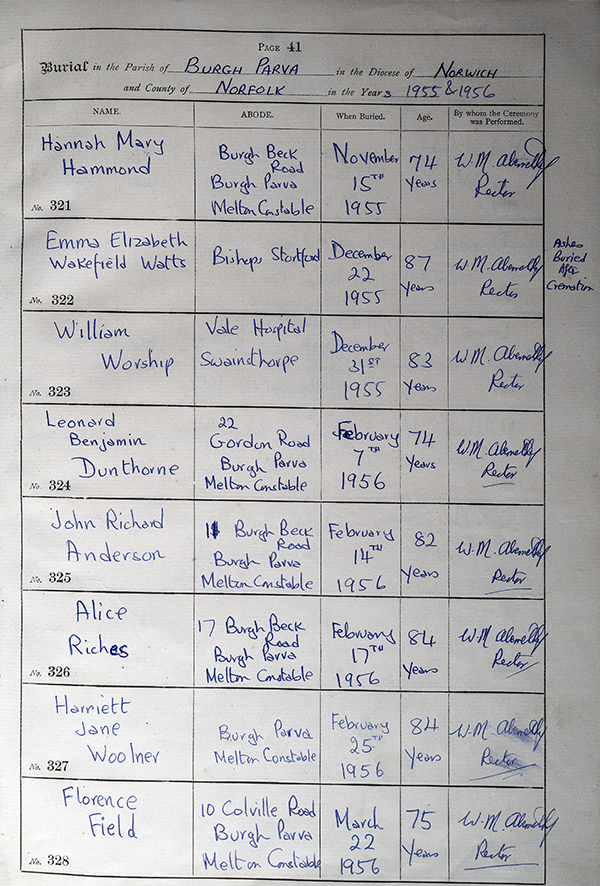 PAGE 41
Burial in the Parish of BURGH PARVA in the Diocese of NORWICH
and County of NORFOLK in the Years 1955 & 1956
NAME. ABODE. When Buried. Age. By whom the Ceremony was Performed.
Hannah Mary
Hammond
No. 321
Burgh Beck
Road
Burgh Parva
Melton Constable
November
15TH
1955
74
Years
W. M. Abernethy
Rector
Emma Elizabeth
Wakefield Watts
No. 322
Bishops Stortford
December
22
1955
87
Years
W. M. Abernethy
Rector
Ashes
Buried
After
Cremation
William
Worship
No. 323
Vale Hospital
Swainsthorpe
December
31ST
1955
83
Years
W. M. Abernethy
Rector
Leonard
Benjamin
Dunthorne
No. 324
22
Gordon Road
Burgh Parva
Melton Constable
February
7TH
1956
74
Years
W. M. Abernethy
Rector
John Richard
Anderson
No. 325
Burgh Beck
Road
Burgh Parva
Melton Constable
February
14TH
1956
82
Years
W. M. Abernethy
Rector
Alice
Riches
No. 326
17 Burgh Beck
Road
Burgh Parva
Melton Constable
February
17TH
1956
84
Years
W. M. Abernethy
Rector
Harriett
Jane
Woolner
No. 327
Burgh Parva
Melton Constable
February
25TH
1956
84
Years
W. M. Abernethy
Rector
Florence
Field
No. 328
10 Colville Road
Burgh Parva
Melton Constable
March
22
1956
75
Years
W. M. Abernethy
Rector